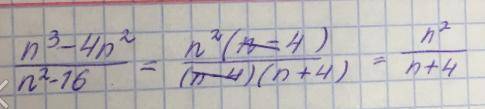 (n³-4n²)/(n²-16) = (n²(n-4))/((n-4)(n+4)) = n²/(n+4)